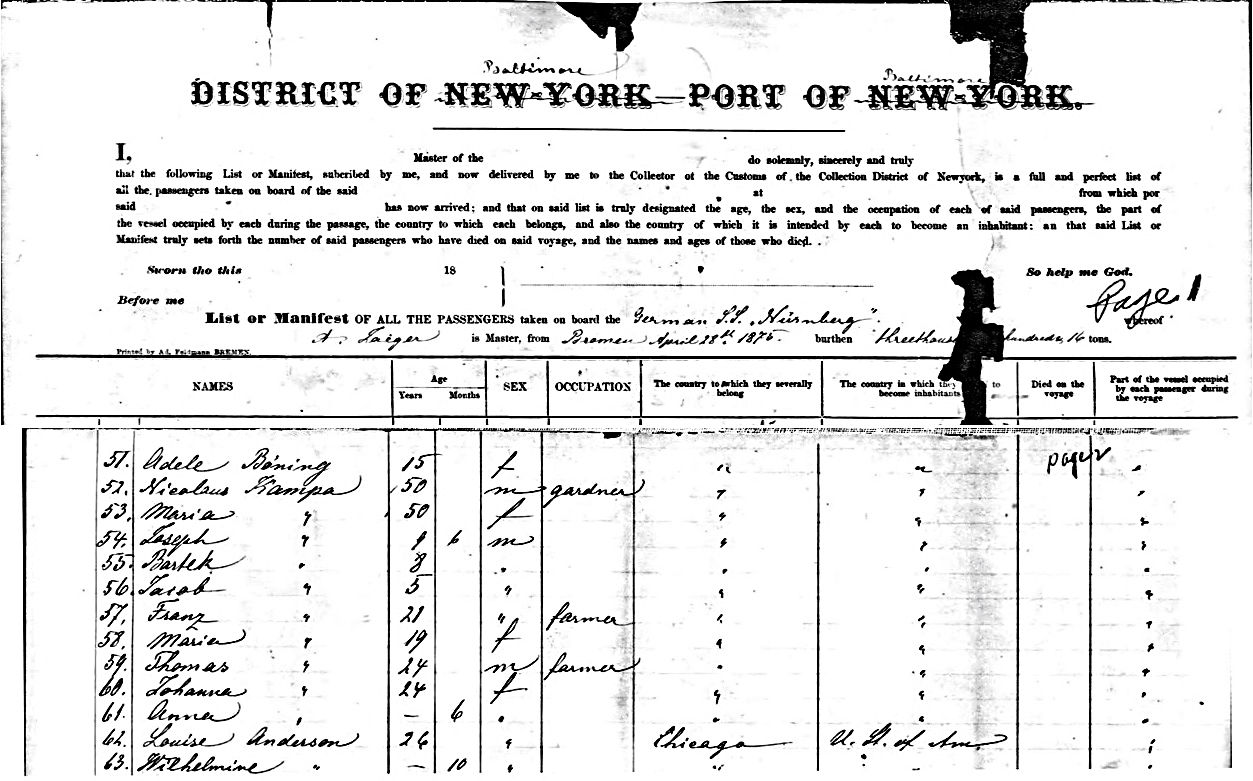 Baltimore Baltimore
DISTRICT OF NEW-YORK—PORT OF NEW-YORK.
I, Master of the do solemnly, sincerely and truly
that the following List or Manifest, subcribed by me, and now delivered by me to the Collector ot the Customs of the Collection District of Newyork, is a full and perfect list of
all the passengers taken on board of the said at from which por
said has now arrived; and that on said list is truly designated the age, the sex, and the occupation of each of said passengers, the part of
the vessel occupied by each during the passage, the country to which each belongs, and also the country of which it is intended by each to become an inhabitant: an that said List or
Manifest truly sets forth the number of said passengers who have died on said voyage, and the names and ages of those who died.
Sworn tho this 18 So help me God.
Before me Pages 1
List or Manifest OF ALL THE PASSENGERS taken on board the German S.S. „Nürnberg" whereof
A. Jaeger is Master, from Bremen April 28th 1875. burthen hundreds, 16 tons.
Printed by Ad. Feldmann BREMEN.
NAMES Age Years Months SEX OCCUPATION The country to which they severally belong The country in which they to become inhabitants Died on the voyage Part of the vessel occupied by each passenger during the voyage
51. Adele Böning 15 f " " "
52. Nicolaus Kampa 50 m gardner " " "
53. Maria " 50 f " " "
54. Joseph " 9 6 m " " "
55. Bartek " 8 " " " "
56. Jacob " 5 " " " "
57. Franz " 21 " farmer " " "
58. Maria " 19 f " " "
59. Thomas " 24 m farmer " " "
60. Johanna " 24 f " " "
61. Anna " — 6 " " " "
62. Louise Anderson 26 " Chicago U. St. of Am "
63. Wilhelmine " — 10 " " " "